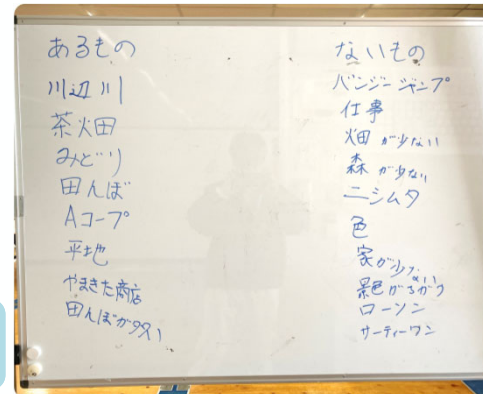 あるもの
川辺川
茶畑
みどり
田んぼ
Aコープ
平地
やまきた商店
田んぼが多い
ないもの
バンジージャンプ
仕事
畑が少ない
森が少ない
ニシムタ
色
家が少ない
景色がちがう
ローソン
サーティーワン